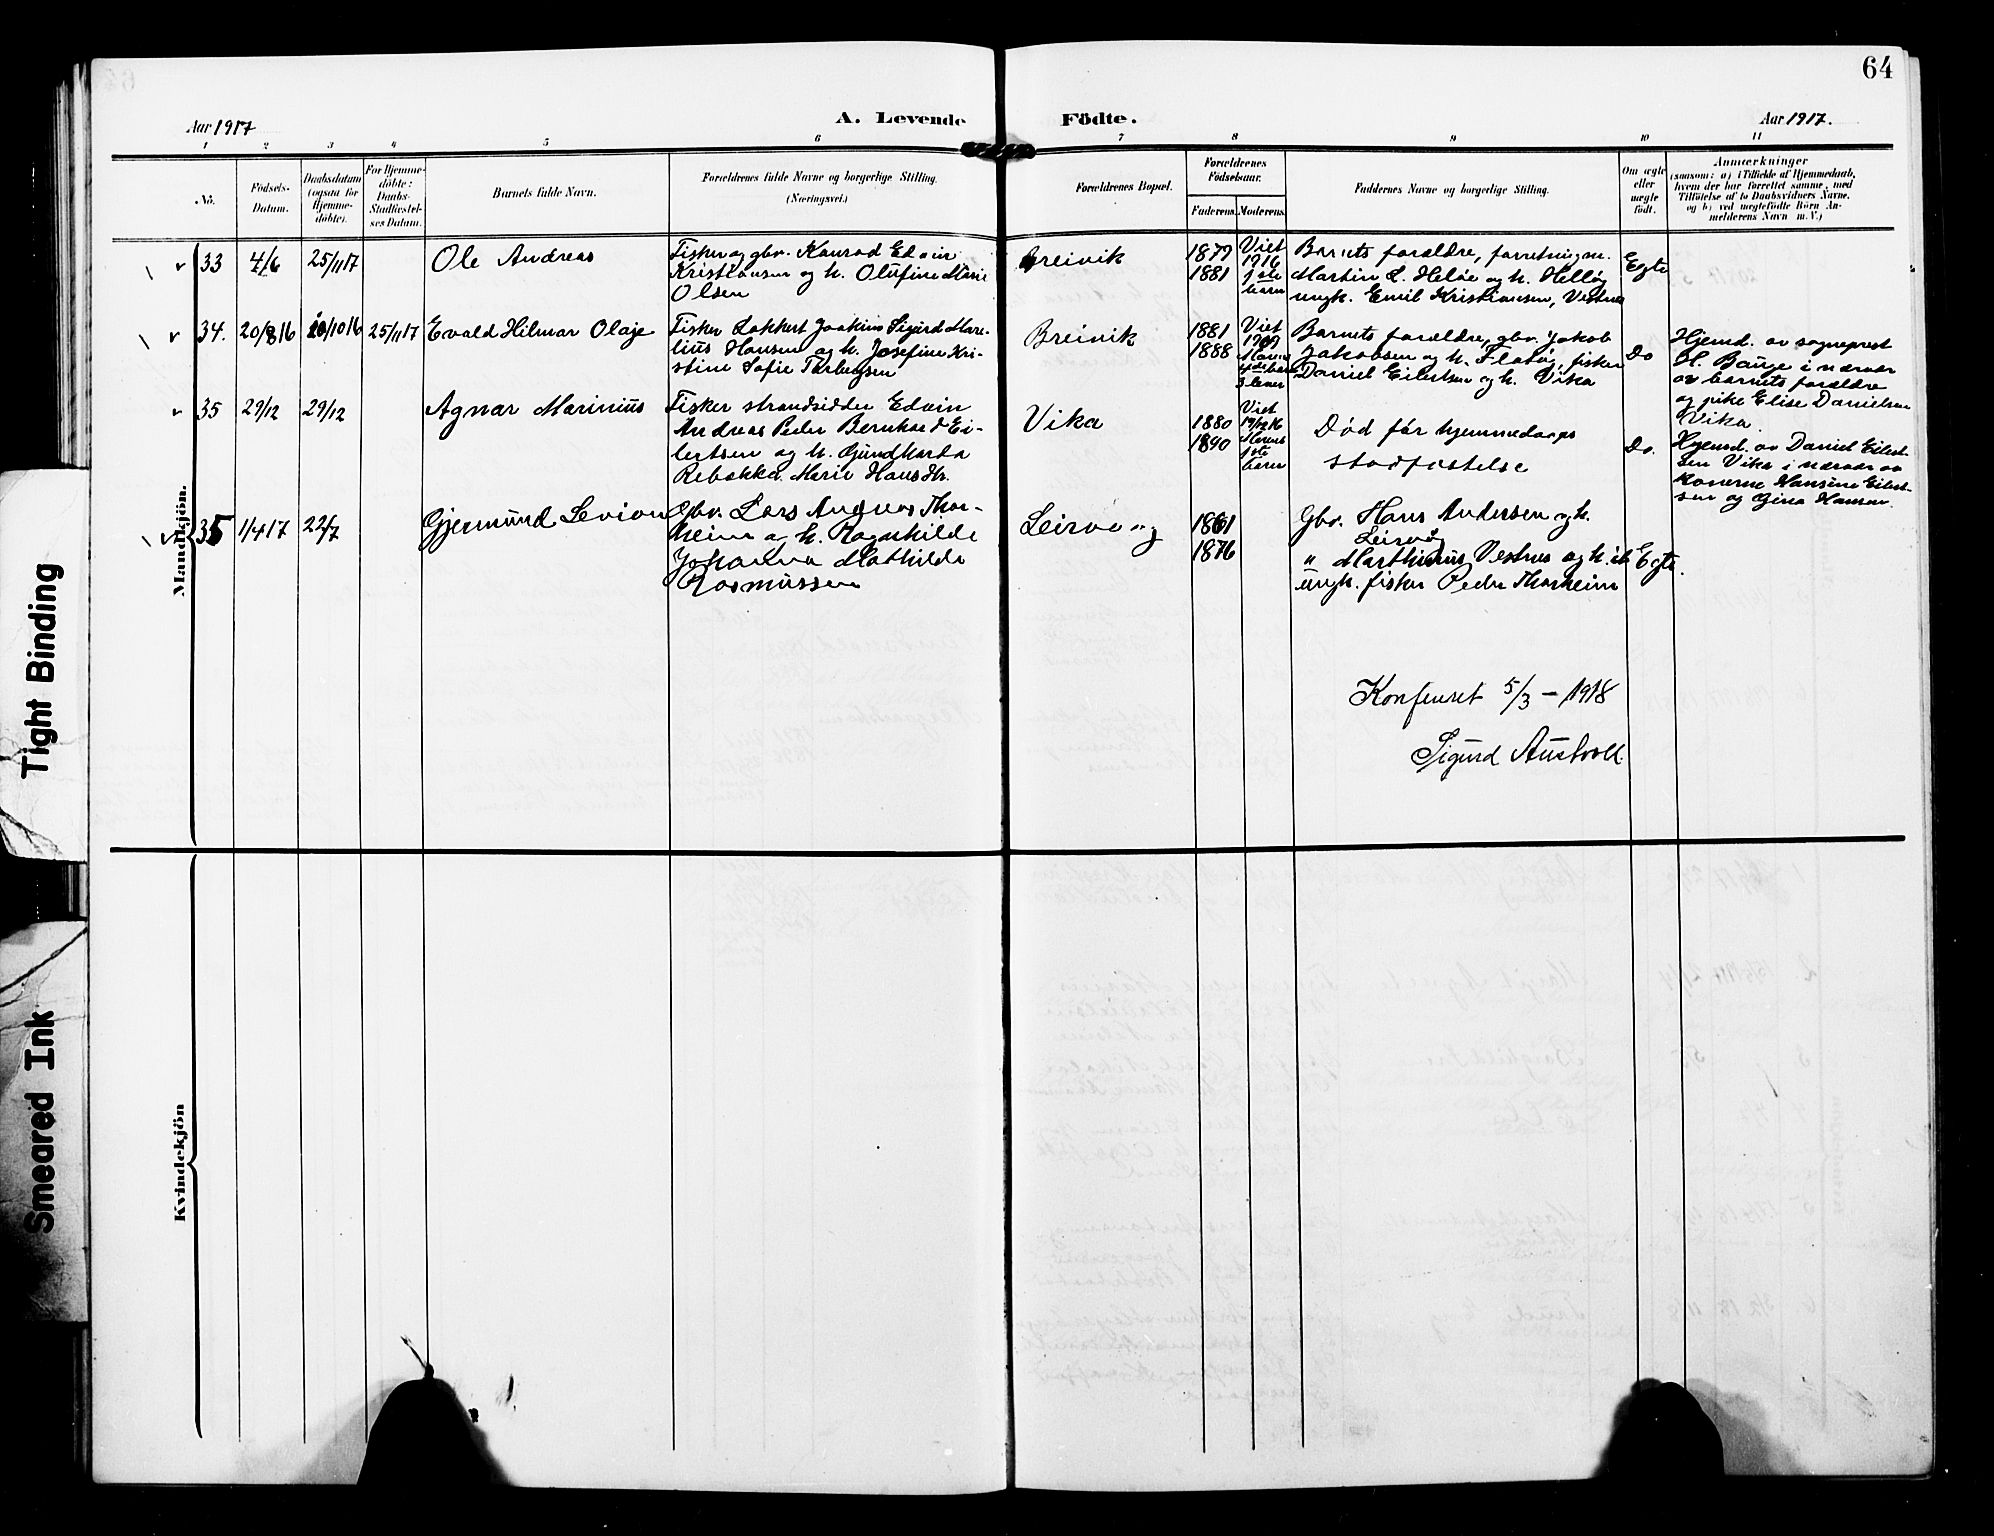 64
Aar 1917
A. Levende
Födte.
Aar 1917.
1 2 3 4 5 6 7 8 9 10 11
No.
Födsels-
Datum.
Daabsdatum
(ogsaa for
Hjemme-
döbte).
For Hjemme-
döbte:
Daabs-
Stadfæstel-
ses Datum.
Barnets fulde Navn.
Forældrenes fulde Navne og borgerlige Stilling.
(Næringsvei.)
Forældrenes Bopæl.
Forældrenes
Födselsaar.
Faderens. Moderens.
Faddernes Navne og borgerlige Stilling.
Om ægte
eller
uægte
födt.
Anmærkninger
(saasom: a) i Tilfælde af Hjemmedaab,
hvem der har forrettet samme, med
Tilföielse af to Daabsvidners Navne,
og b) ved uægtefödte Börn An-
melderens Navn m. V.)
Mandkjön.
33
4/6
25/11 17
Ole Andreas
Fisker og gbr. Konrad Edvin
Kristiansen og h. Olufine Marie
Olsen
Breivik
1879
1881
Viet
1916
1ste
barn
Barnets forældre, forretningsm.
Martin L. Heløe og h. Helløy
ungk. Emil Kristiansen, Vestnes
Egte
34.
20/8 16
10/10 16
25/11 17
Evald Hilmar Olaje
Fisker Lokkert Joakim Sigurd Mare-
lius Hansen og h. Josefine Kri-
stine Sofie Torbergsen
Breivik
1881
1888
Viet
1909
4de barn
3 lever
Barnets forældre, gbr. Jakob
Jakobsen og h. Flatøy, fisker
Daniel Eilertsen og h. Vika
Do
Hjemd. av sogneprest
H. Bauge i nærvær
av barnets forældre
og pike Elise Danielsen
Vika.
35
29/12
29/12
Agnar Marinius
Fisker strandsidder Edvin
Andreas Peder Bernhard Ei-
lertsen og h. Gundharda
Rebekka Marie Hansdtr.
Vika
1880
1890
Viet
19/12 16
1ste
barn
Død før hjemmedaaps
stadfæstelse
Do.
Hjemd. av Daniel Eilert-
sen Vika i nærvær av
konerne Hansine Eilert-
sen og Gina Hansen.
35
1/4 17
22/7
Gjermund Levion
Gbr. Lars Andreas Thor-
heim og h. Ragnhilde
Johanna Mathilde
Rasmussen
Leirvaag
1861
1876
Gbr. Hans Andersen og h.
Leirvåg
" Marthinus Vestnes og h. ib
ungk. fisker Peder Thorheim
Egte.
Konferert 5/3 – 1918
Sigurd Austvoll.
Kvindekjön
Tight Binding
Smeared Ink